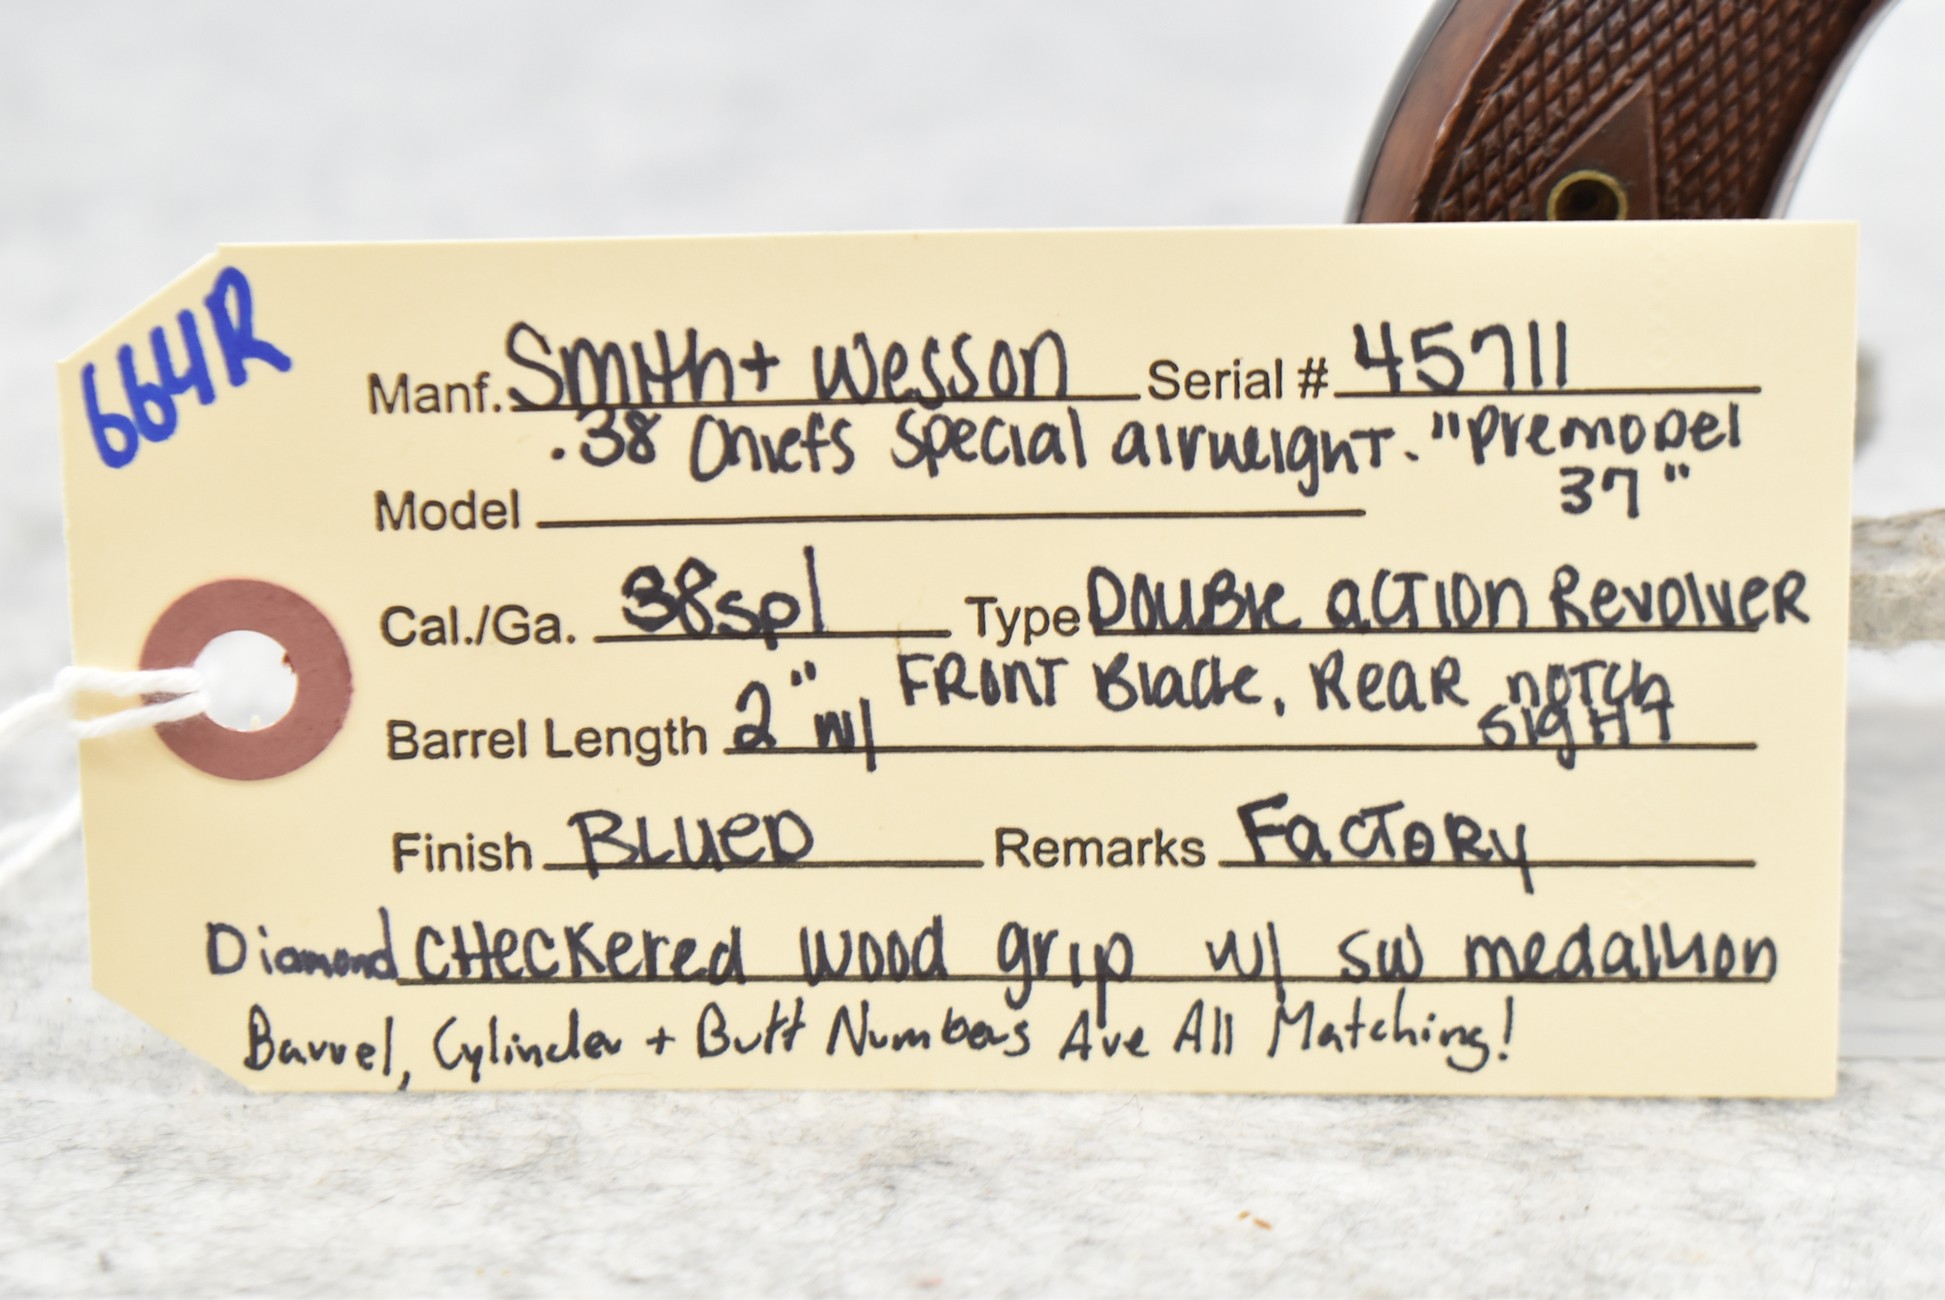 664R
Manf. Smith + Wesson Serial # 45711
.38 Chiefs Special airweight. "premodel
37"
Model
Cal./Ga. 38spl Type Double action Revolver
Barrel Length 2" w/ Front Blade, Rear notch
sight
Finish Blued Remarks Factory
Diamond checkered wood grip w/ sw medallion
Barrel, Cylinder + Butt Numbers Are All Matching!